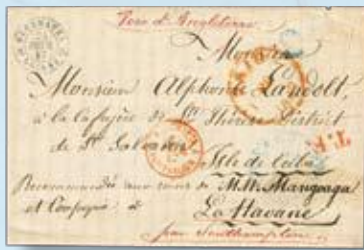 Voie d'Angleterre
Monsieur
Monsieur Alphonse Landolt,
à la cafeyère de Sta Thérèse District
de St Salvador
Isle de Cuba
Recommandée aux soins de M.M. Mangoaga
et Compagnie à
La Havane
par Southampton